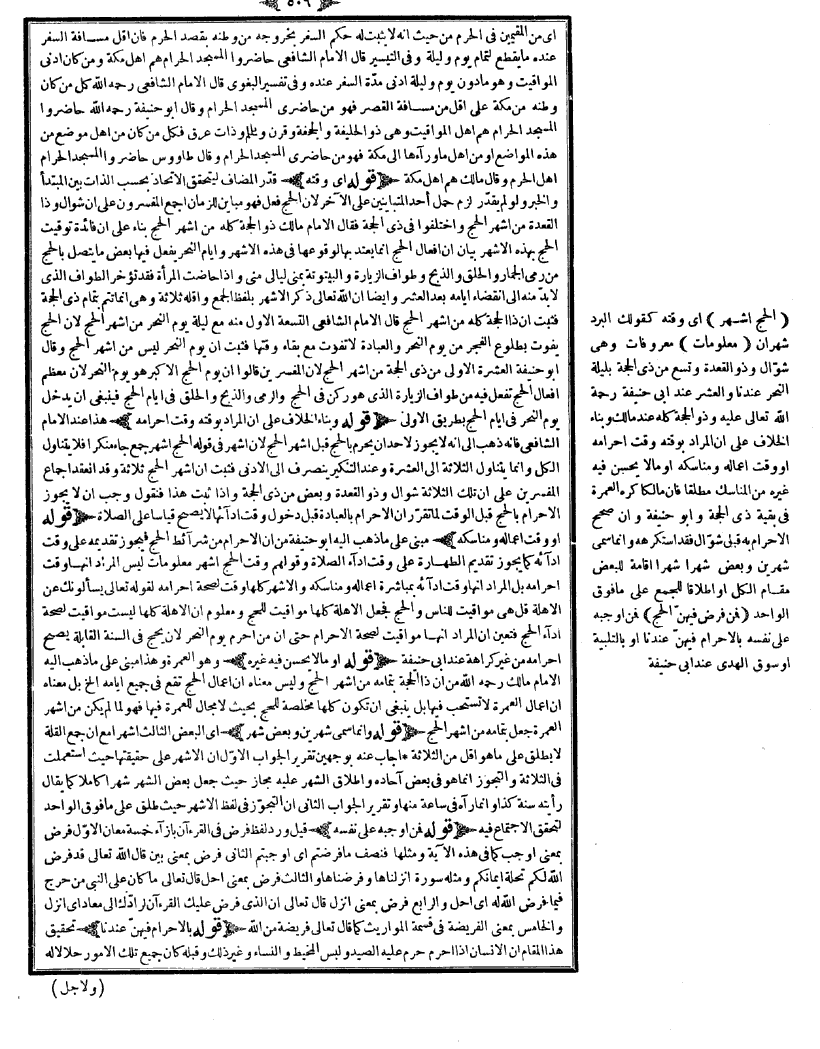 ﴿ ٥٠٦ ﴾
اى من المقيمين فى الحرم من حيث انه لا يثبت له حكم السفر بخروجه من وطنه بقصد الحرم فان اقل مسافة السفر
عنده ما يقطع لتمام يوم وليلة وفى التيسير قال الامام الشافعى حاضروا المسجد الحرام هم اهل مكة ومن كان ادنى
المواقيت وهو مادون يوم وليلة ادنى مدّة السفر عنده وفى تفسير البغوى قال الامام الشافعى رحمه الله كل من كان
وطنه من مكة على اقل من مسافة القصر فهو من حاضرى المسجد الحرام وقال ابو حنيفة رحمه الله حاضروا
المسجد الحرام هم اهل المواقيت وهى ذو الحليفة والجحفة وقرن ويلم وذات عرق فكل من كان من اهل موضع من
هذه المواضع او من اهل ماورآءها الى مكة فهو من حاضرى المسجد الحرام وقال طاووس حاضروا المسجد الحرام
اهل الحرم وقال مالك هم اهل مكة ﴿ قوله اى وقته ﴾ قدّر المضاف ليتحقق الاتحاد بحسب الذات بين المبتدأ
والخبر ولو لم يقدّر لزم حمل أحد المتباينين على الآخر لان الحج فعل فهو مباين للزمان اجمع المفسرون على ان شوال وذا
القعدة من اشهر الحج واختلفوا فى ذى الحجة فقال الامام مالك ذو الحجة كله من اشهر الحج بناء على ان فائدة توقيت
الحج بهذه الاشهر بيان ان افعال الحج انما يعتد بها لوقوعها فى هذه الاشهر وايام النحر يفعل فيها بعض ما يتصل بالحج
من رمى الجمار والحلق والذبح وطواف الزيارة والبيتوتة بمنى ليالى منى واذا حاضت المرأة فقد تؤخر الطواف الذى
لابدّ منه الى انقضاء ايامه بعد العشر وايضا ان الله تعالى ذكر الاشهر بلفظ الجمع واقله ثلاثة وهى انما تتم بتمام ذى الحجة
فثبت ان ذا الحجة كله من اشهر الحج قال الامام الشافعى التسعة الاول منه مع ليلة يوم النحر من اشهر الحج لان الحج
يفوت بطلوع الفجر من يوم النحر والعبادة لاتفوت مع بقاء وقتها فثبت ان يوم النحر ليس من اشهر الحج وقال
ابو حنيفة العشرة الاولى من ذى الحجة من اشهر الحج لان المفسرين قالوا ان يوم الحج الاكبر هو يوم النحر لان معظم
افعال الحج تفعل فيه من طواف الزيارة الذى هو ركن فى الحج والرمى والذبح والحلق فى ايام الحج فينبغى ان يدخل
يوم النحر فى ايام الحج بطريق الاولى ﴿ قوله وبناء الخلاف على ان المراد بوقته وقت احرامه ﴾ هذا عند الامام
الشافعى فانه ذهب الى انه لايجوز لاحد ان يحرم بالحج قبل اشهر الحج لان اشهر فى قوله الحج اشهر جمع جاء منكرا فلا يتناول
الكل وانما يتناول الثلاثة الى العشرة وعند التنكير ينصرف الى الادنى فثبت ان اشهر الحج ثلاثة وقد انعقد اجماع
المفسرين على ان تلك الثلاثة شوال وذو القعدة وبعض من ذى الحجة واذا ثبت هذا فنقول وجب ان لايجوز
الاحرام بالحج قبل الوقت لما تقرر ان الاحرام بالعبادة قبل دخول وقت ادآئها لا يصح قياسا على الصلاة ﴿ قوله
او وقت اعماله ومناسكه ﴾ مبنى على ماذهب اليه ابو حنيفة من ان الاحرام من شرائط الحج فيجوز تقديمه على وقت
ادآئه كما يجوز تقديم الطهارة على وقت ادآء الصلاة وقولهم وقت الحج اشهر معلومات ليس المراد انها وقت
احرامه بل المراد انها وقت ادآئه بمباشرة اعماله ومناسكه والاشهر كلها وقت لصحة احرامه لقوله تعالى يسألونك عن
الاهلة قل هى مواقيت للناس والحج فجعل الاهلة كلها مواقيت للحج ومعلوم ان الاهلة كلها ليست مواقيت لصحة
ادآء الحج فتعين ان المراد انها مواقيت لصحة الاحرام حتى ان من احرم يوم النحر لان يحج فى السنة القابلة يصح
احرامه من غير كراهة عند ابى حنيفة ﴿ قوله او مالا يحسن فيه غيره ﴾ وهو العمرة وهذا مبنى على ماذهب اليه
الامام مالك رحمه الله من ان ذا الحجة بتمامه من اشهر الحج وليس معناه ان اعمال الحج تقع فى جميع ايامه الخ بل معناه
ان اعمال العمرة لاتستحب فيها بل ينبغى ان تكون كلها مخلصة للحج بحيث لا مجال للعمرة فيها فهو لما لم يكن من اشهر
العمرة جعل بتمامه من اشهر الحج ﴿ قوله وانما سمى شهرين وبعض شهر ﴾ اى البعض الثالث اشهرا مع ان جمع القلة
لا يطلق على ماهو اقل من الثلاثة * اجاب عنه بوجهين تقرير الجواب الاوّل ان الاشهر على حقيقتها حيث استعملت
فى الثلاثة والتجوّز انما هو فى بعض آحاده واطلاق الشهر عليه مجاز حيث جعل بعض الشهر شهرا كاملا كما يقال
رأيته سنة كذا وانما رآه فى ساعة منها وتقرير الجواب الثانى ان التجوّز فى لفظ الاشهر حيث طلق على مافوق الواحد
لتحقق الاجتماع فيه ﴿ قوله فمن اوجبه على نفسه ﴾ قيل ورد لفظ فرض فى القرءآن بازآء خمسة معان الاوّل فرض
بمعنى اوجب كما فى هذه الآية ومثلها فنصف مافرضتم اى اوجبتم الثانى فرض بمعنى بين قال الله تعالى قد فرض
الله لكم تحلة ايمانكم ومثله سورة انزلناها وفرضناها والثالث فرض بمعنى احل قال تعالى ما كان على النبى من حرج
فيما فرض الله له اى احل والرابع فرض بمعنى انزل قال تعالى ان الذى فرض عليك القرءآن لرادّك الى معاد اى انزل
والخامس بمعنى الفريضة فى قسمة المواريث كما قال تعالى فريضة من الله ﴿ قوله بالاحرام فيهنّ عندنا ﴾ تحقيق
هذا المقام ان الانسان اذا احرم حرم عليه الصيد ولبس المخيط والنساء وغير ذلك وقبله كان جميع تلك الامور حلالا له
( ولاجل )
( الحج اشهر ) اى وقته كقولك البرد
شهران ( معلومات ) معروفات وهى
شوّال وذو القعدة وتسع من ذى الحجة بليلة
النحر عندنا والعشر عند ابى حنيفة رحمة
الله تعالى عليه وذو الحجة كله عند مالك وبناء
الخلاف على ان المراد بوقته وقت احرامه
او وقت اعماله ومناسكه او مالا يحسن فيه
غيره من المناسك مطلقا فان مالكا كره العمرة
فى بقية ذى الحجة وابو حنيفة وان صحح
الاحرام به قبل شوّال فقد استكرهه وانما سمى
شهرين وبعض شهرا شهرا اقامة للبعض
مقام الكل او اطلاقا للجمع على مافوق
الواحد ( فمن فرض فيهنّ الحج ) فمن اوجبه
على نفسه بالاحرام فيهنّ عندنا او بالتلبية
او سوق الهدى عند ابى حنيفة